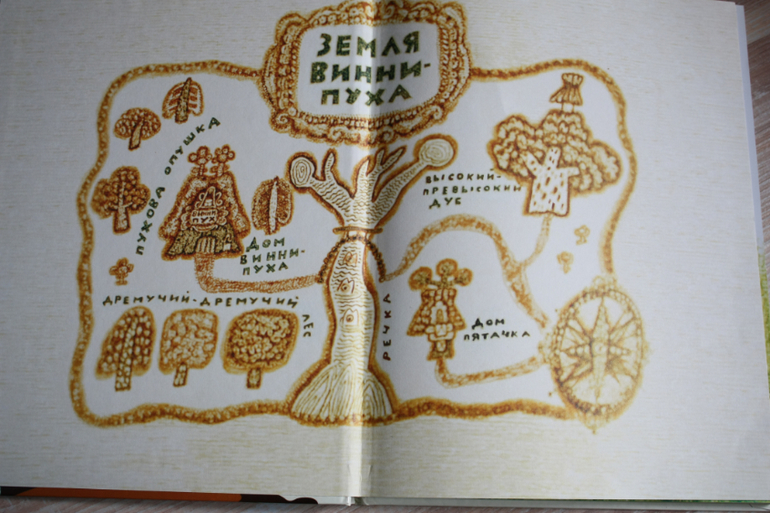 ЗЕМЛЯ
ВИННИ-
ПУХА
ПУХОВА ОПУШКА
ВИННИ
ПУХ
ДОМ
ВИННИ-
ПУХА
ВЫСОКИЙ-
ПРЕВЫСОКИЙ
ДУБ
ДРЕМУЧИЙ-ДРЕМУЧИЙ ЛЕС
РЕЧКА
ДОМ
ПЯТАЧКА